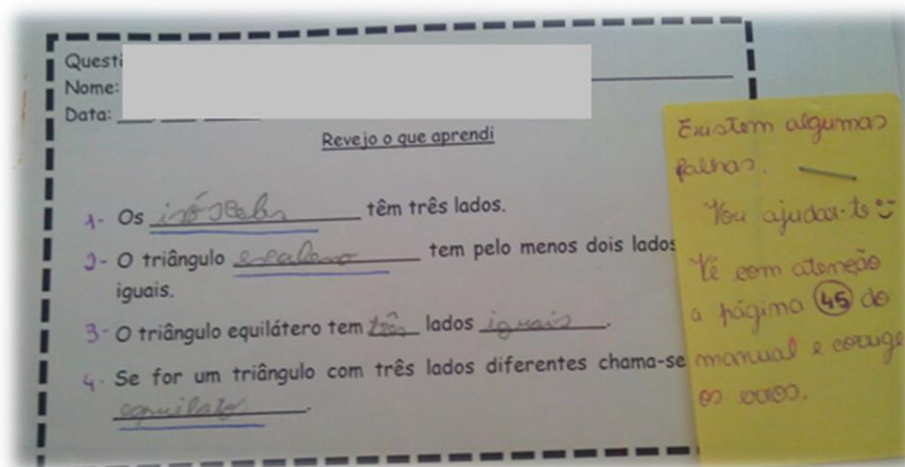 Questi
Nome:
Data:
Revejo o que aprendi
1- Os isósceles têm três lados.
2- O triângulo escaleno tem pelo menos dois lados
iguais.
3- O triângulo equilátero tem três lados iguais.
4- Se for um triângulo com três lados diferentes chama-se
equilátro.
Existem algumas
falhas.
Vou ajudar-te
Vê com atenção
a página 45 do
manual e corrige
os erros.